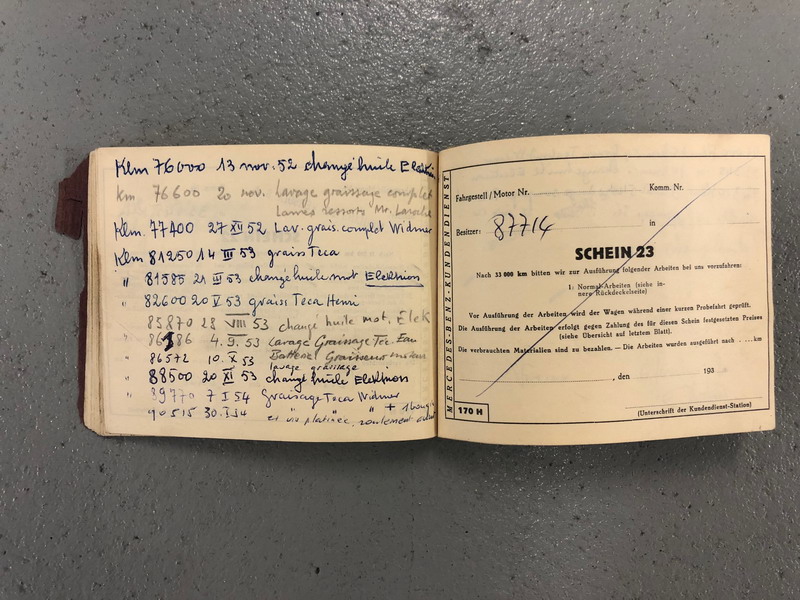 Klm 76000 13 nov. 52 changé huile Elektrion
km 76600 20 nov. Lavage graissage complet
Lames ressorts Mr.
Klm. 77400 27 XII 52 Lav. grais. complet Widmer
Klm 81250 14 III 53 graiss Teca
" 81585 21 III 53 changé huile mot Elektrion
" 82600 20 V 53 graiss Teca Henri
85870 28 VIII 53 changé huile mot. Elek
" 86 86 4. 9. 53 Lavage Graissage Tec. Eau
" 86572 10. X 53 Batterie Graisseurs
lavage graissage
" 88500 20 XI 53 changé huile Elektrion
" 89770 7 I 54 Graissage Teca Widmer
90515 30. I 54 " " " +
et vis platinée, roulement
MERCEDES-BENZ-KUNDENDIENST
Fahrgestell / Motor Nr. Komm. Nr.
Besitzer: 87714 in
SCHEIN 23
Nach 33 000 km bitten wir zur Ausführung folgender Arbeiten bei uns vorzufahren:
1: Normal-Arbeiten (siehe in-
nere Rückdeckelseite)
Vor Ausführung der Arbeiten wird der Wagen während einer kurzen Probefahrt geprüft.
Die Ausführung der Arbeiten erfolgt gegen Zahlung des für diesen Schein festgesetzten Preises
(siehe Übersicht auf letztem Blatt).
Die verbrauchten Materialien sind zu bezahlen. — Die Arbeiten wurden ausgeführt nach . . . . km
, den 193
(Unterschrift der Kundendienst-Station)
170 H